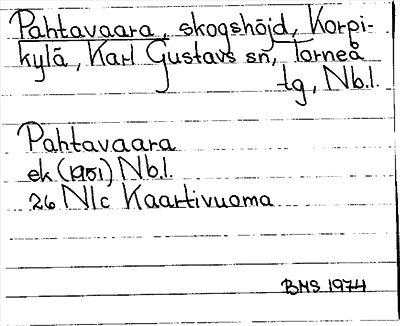 Pahtavaara, skogshöjd, Korpi-
kylä, Karl Gustavs sn, Torneå
tg, Nb.l.
Pahtavaara
ek (1951) Nb.l.
26 Nlc Kaartivuoma
BMS 1974